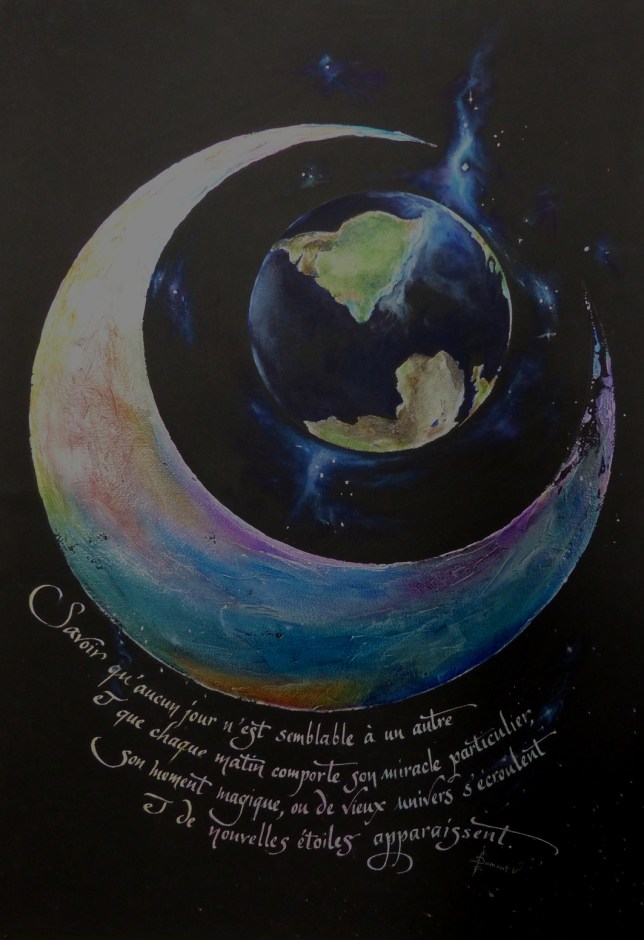 Savoir qu'aucun jour n'est semblable à un autre
& que chaque matin comporte son miracle particulier,
Son moment magique, ou de vieux univers s'écroulent
& de nouvelles étoiles apparaissent.